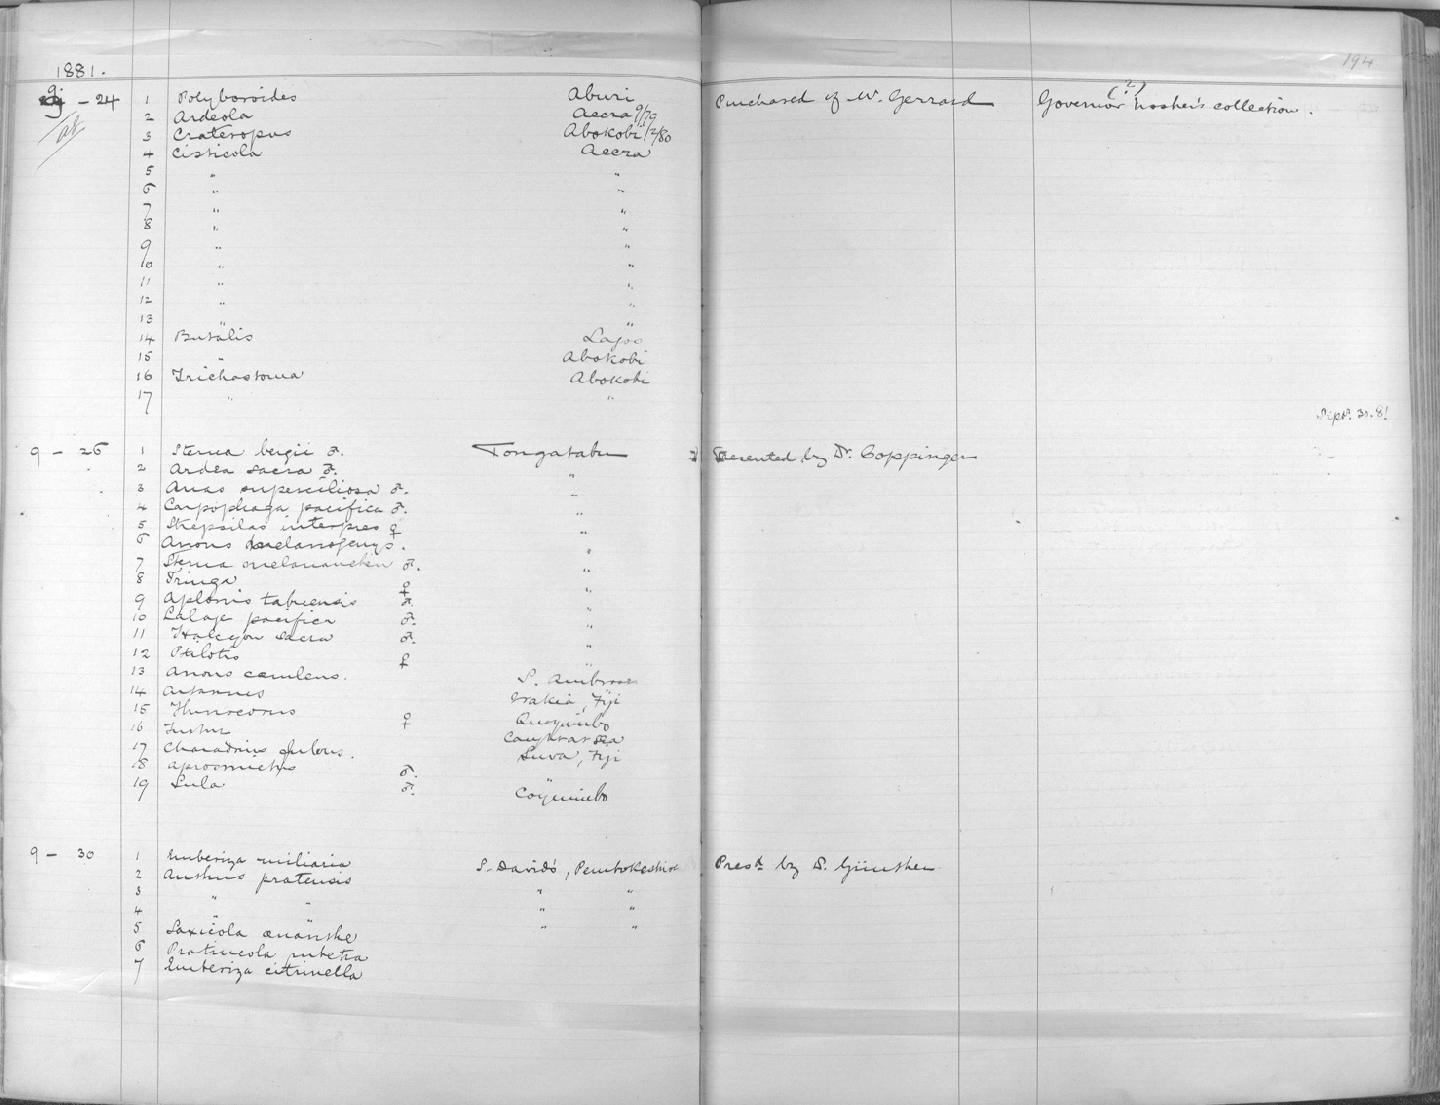 194
1881.
9 - 24 1 Polyboroides Aburi Purchased of W. Gerrard Governor (?) Mosher's collection.
2 Ardeola Accra 9/79
3 Crateropus Abokobi 1/2/80
4 Cisticola Accra
5 " "
6 " "
7 " "
8 " "
9 " "
10 " "
11 " "
12 " "
13 " "
14 Butalis Lagos
15 " Abokobi
16 Trichastoma Abokobi
17 " "
Sept. 30. 81
9 - 26 1 Sterna bergii ♂. Tongatabu Presented by Dr. Coppinger
2 Ardea sacra ♂. "
3 Anas superciliosa ♂. "
4 Carpophaga pacifica ♂. "
5 Strepsilas interpres ♀ "
6 Anous melanogenys. "
7 Sterna melanauchen ♂. "
8 Tringa ♀ "
9 Aplonis tabuensis ♂. "
10 Lalage pacifica ♂. "
11 Halcyon sacra ♂. "
12 Ptilotis ♀ "
13 Anous cæruleus. S. Ambrose
14 Artamus Wakia, Fiji
15
16 ♀
17 Charadrius fulvus. Suva, Fiji
18 Aprosmictus ♂. "
19 Sula ♂. Coquimbo
9 - 30 1 Emberiza miliaria S. David's, Pembrokeshire Presd. by D. Günther
2 Anthus pratensis " "
3 " " " "
4 " " " "
5 Saxicola œnanthe
6 Pratincola rubetra
7 Emberiza citrinella